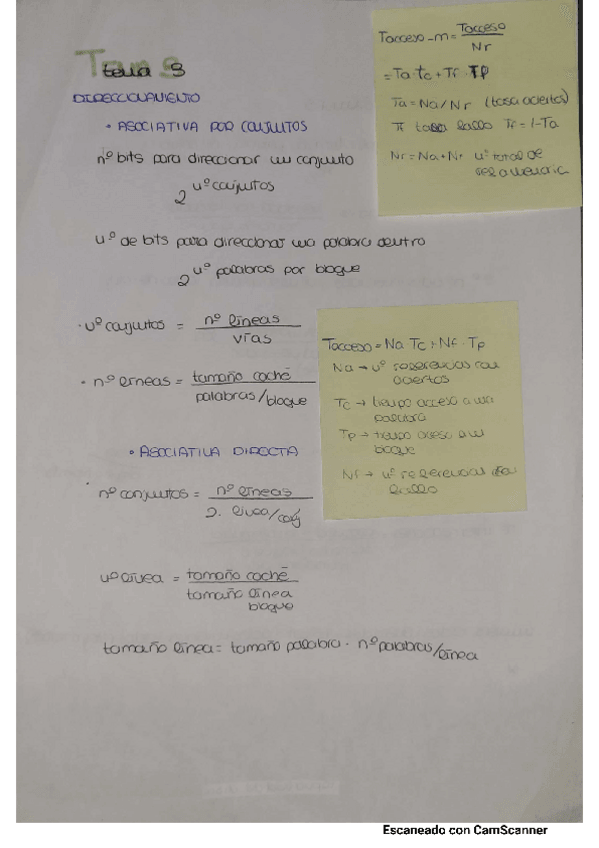 tema 3
DIRECCIONAMIENTO
• ASOCIATIVA POR CONJUNTOS
nº bits para direccionar un conjunto
2 nº conjuntos
nº de bits para direccionar una palabra dentro
2 nº palabras por bloque
· nº conjuntos = nº líneas / vías
• nº líneas = tamaño caché / palabras/bloque
• ASOCIATIVA DIRECTA
nº conjuntos = nº líneas / 2. línea/conj
nº línea = tamaño caché / tamaño línea bloque
tamaño línea = tamaño palabra · nº palabras/línea
Tacceso-m = Tacceso / Nr
= Ta · tc + Tf · Tp
Ta = Na/Nr (tasa aciertos)
Tf tasa fallo Tf = 1-Ta
Nr = Na + Nf nº total de
Tacceso = Na Tc + Nf · Tp
Na → nº referencias con
aciertos
Tc → tiempo acceso a una
palabra
Tp → tiempo acceso a un
bloque
Nf → nº referencias
fallo
Escaneado con CamScanner